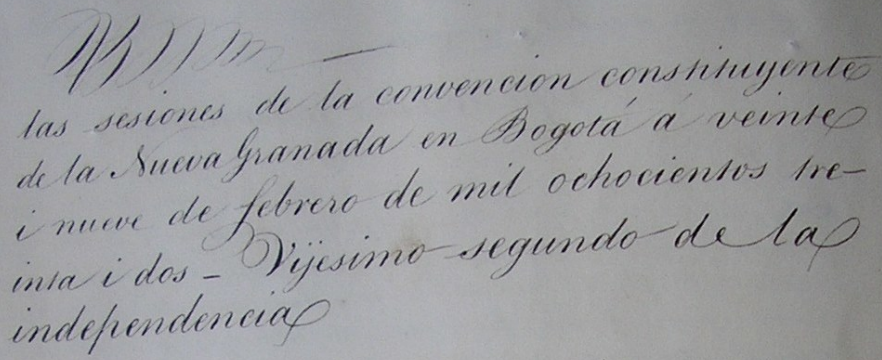 las sesiones de la convencion constituyente
de la Nueva Granada en Bogotá á veinte
i nueve de febrero de mil ochocientos tre-
inta i dos - Vijesimo segundo de la
independencia